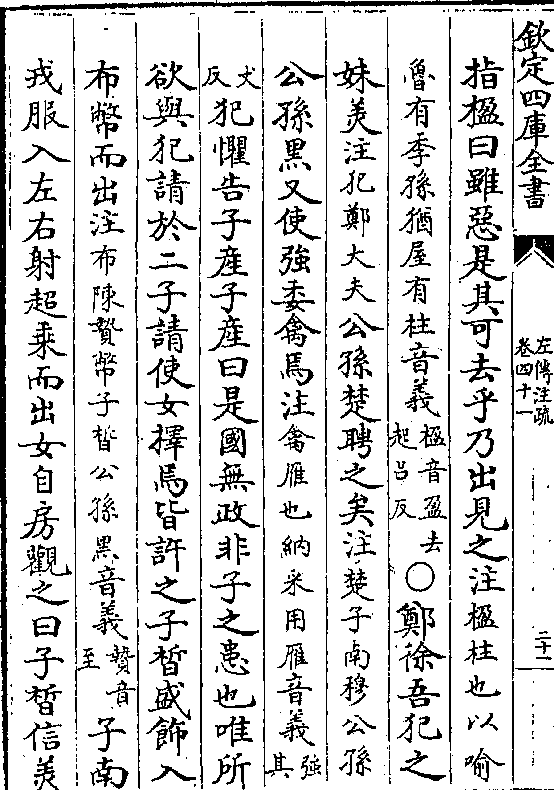 欽定四庫全書
左傳注疏
卷四十一
二十一
指楹曰雖惡是其可去乎乃出見之注楹柱也以喻
魯有季孫猶屋有柱音義楹音盈去起呂反○鄭徐吾犯之
妹美注犯鄭大夫公孫楚聘之矣注楚子南穆公孫
公孫黑又使強委禽焉注禽雁也納采用雁音義強其
丈反犯懼告子產子產曰是國無政非子之患也唯所
欲與犯請於二子請使女擇焉皆許之子晳盛飾入
布幣而出注布陳贄幣子晳公孫黑音義贄音至子南
戎服入左右射超乘而出女自房觀之曰子晳信美